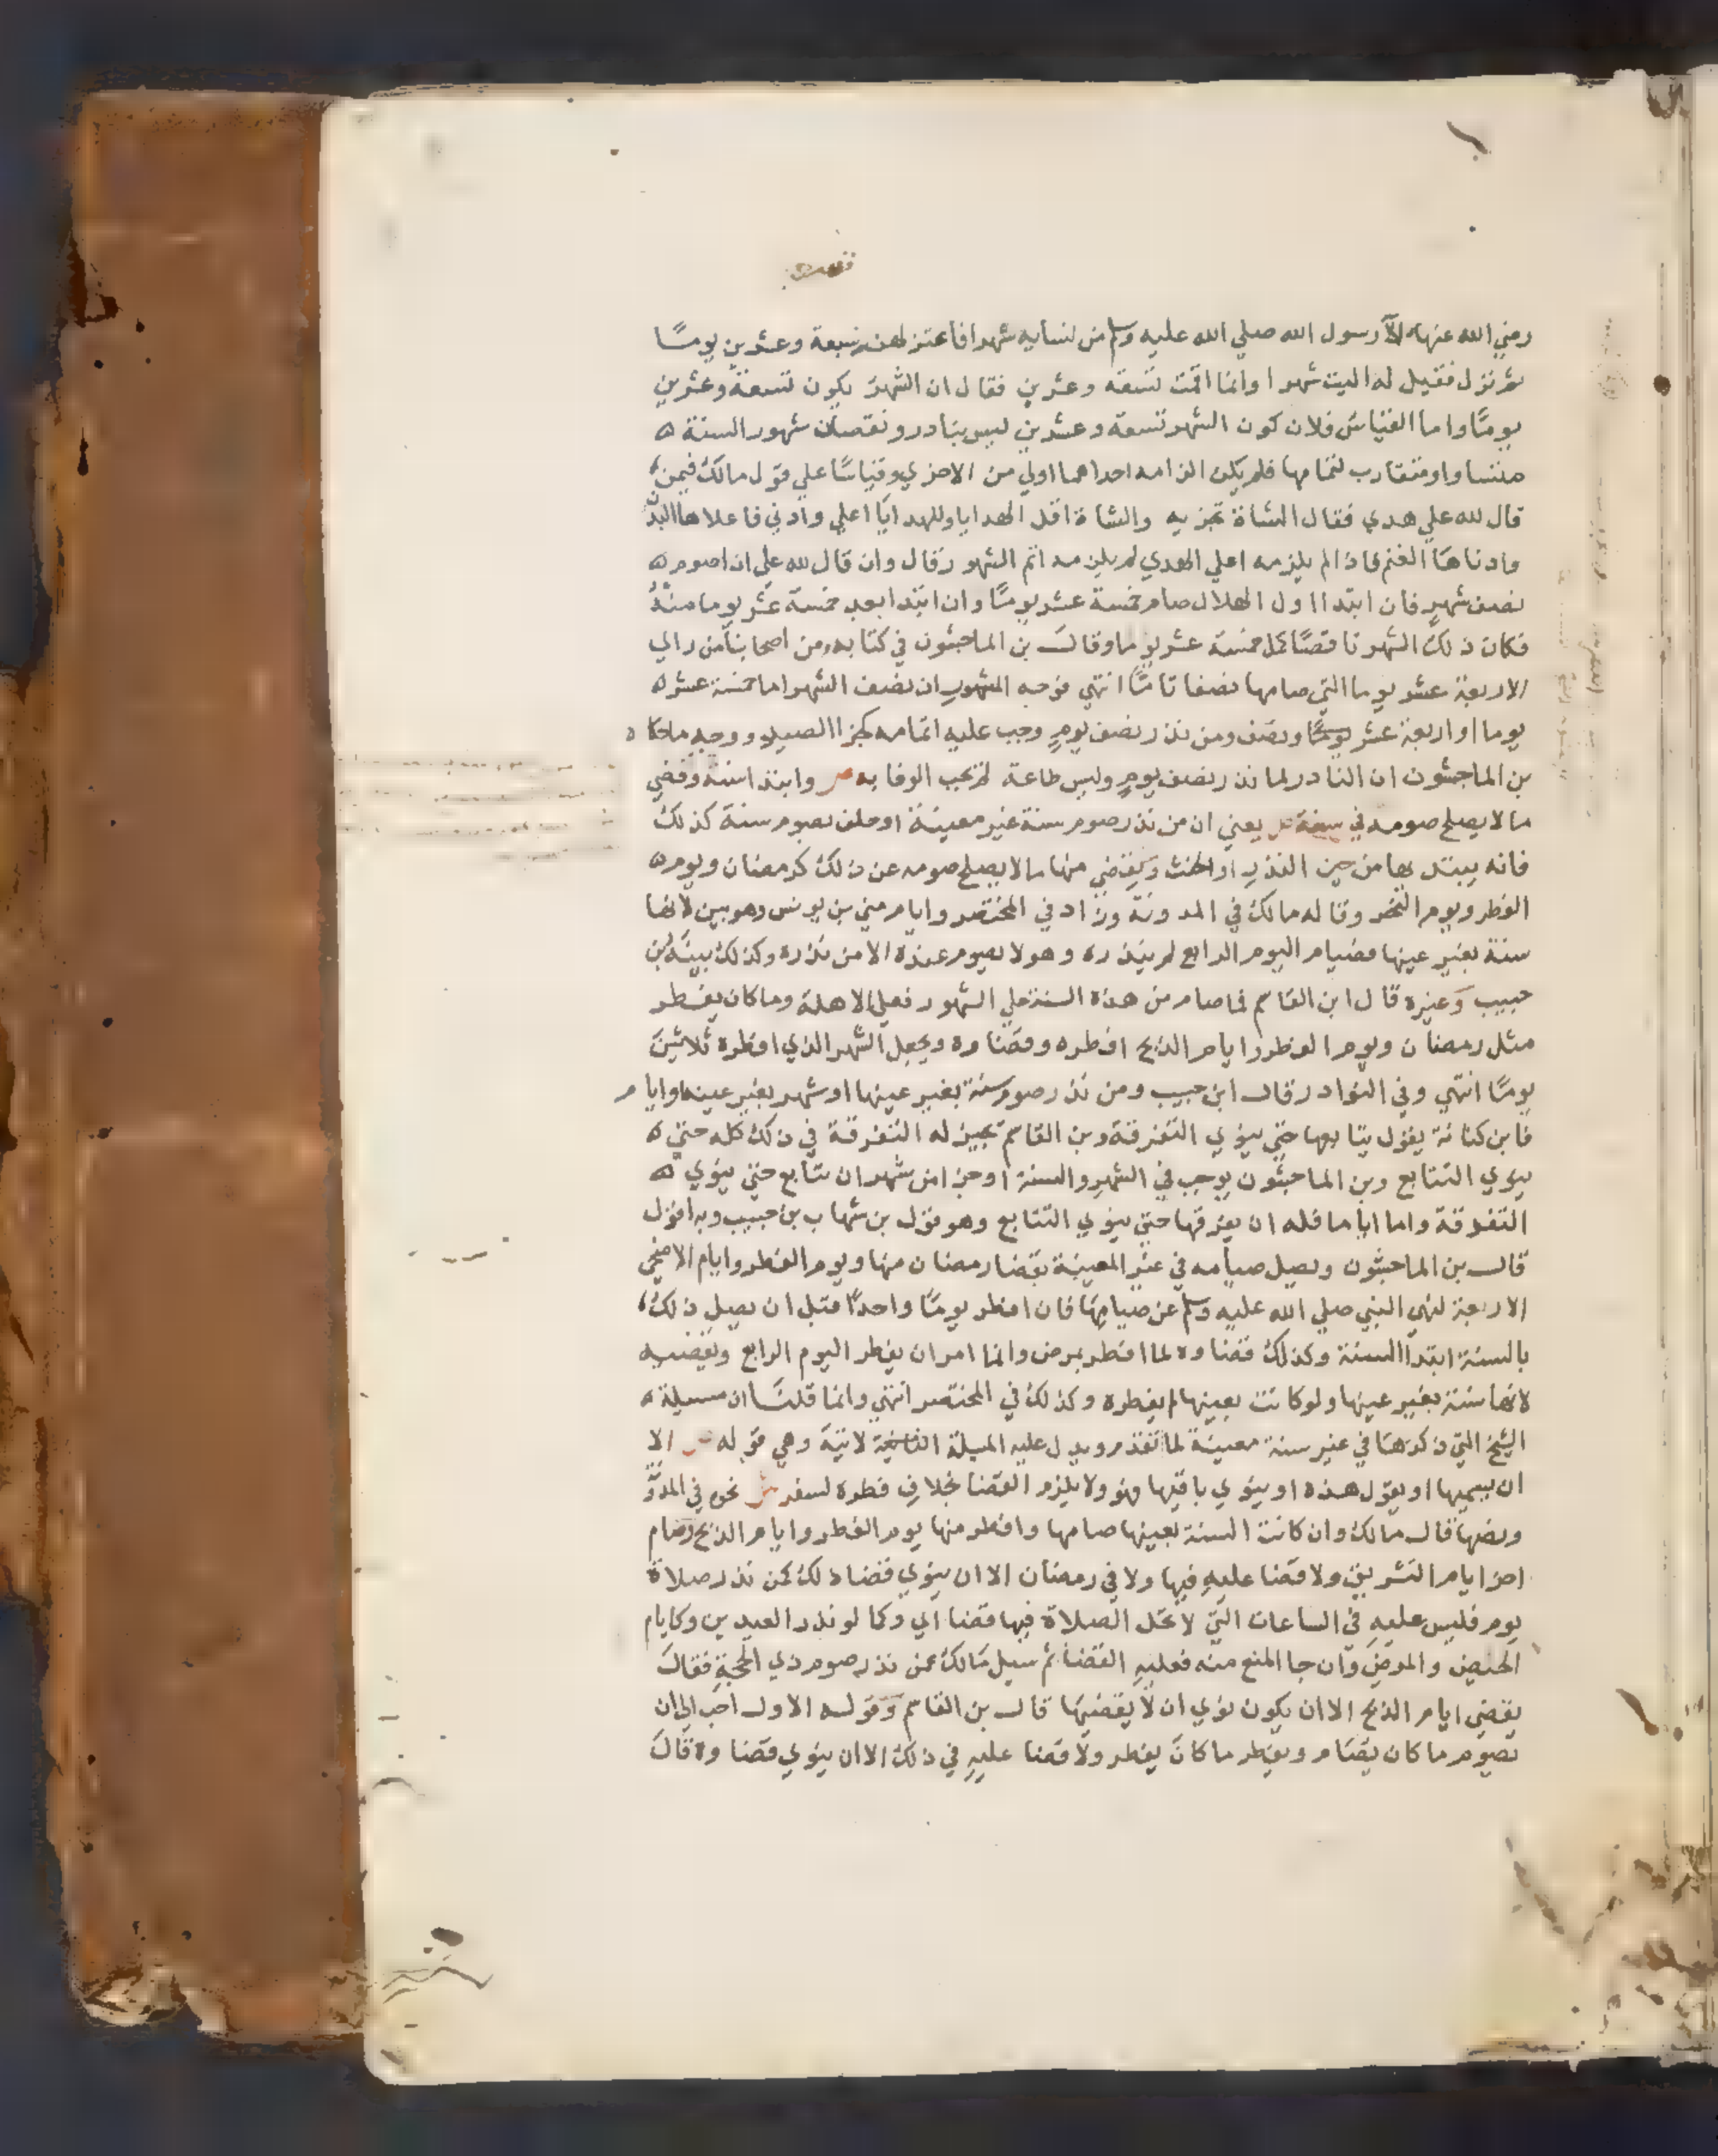 رضي الله عنها الآ رسول الله صلي الله عليه وسلم من نسايه شهرا فاعتزلهن تسعة وعشرين يومًا
ثم نزل فقيل له اليت شهرا وانما اقمت تسعة وعشرين فقال ان الشهر يكون تسعة وعشرين
يومًا واما القياس فلان كون الشهر تسعة وعشرين ليس بنادر ونقصان شهور السنة
متساو او متقارب لتمامها فلم يكن الزامه احداهما اولي من الاخري وقياسًا علي قول مالك فيمن
قال لله علي هدي فقال الشاة تجزيه والشاة اقل الهدايا وللهدايا اعلي وادني فاعلاها البدن
وادناها الغنم فاذا لم يلزمه اعلي الهدي لم يلزمه اتم الشهور قال وان قال لله علي ان اصوم
نصف شهر فان ابتدا اول الهلال صام خمسة عشر يومًا وان ابتدا بعد خمسة عشر يوما منه
فكان ذلك الشهر ناقصًا كمل خمسة عشر يوما وقال بن الماجشون في كتابه ومن اصحابنا من راي
الاربعة عشر يوما التي صامها نصفا تامًا انتهي فوجه المشهور ان نصف الشهر اما خمسة عشر
يوما او اربعة عشر يومًا ونصف ومن نذر نصف يوم وجب عليه اتمامه كجزا الصيد ووجه ما حكا
بن الماجشون ان النادر لما نذر نصف يوم وليس طاعة لم يجب الوفا به ص وابتدا سنة وقضي
ما لا يصلح صومه في سنة ش يعني ان من نذر صوم سنة غير معينة او حلف بصوم سنة كذلك
فانه يبتد بها من حين النذر او الحنث ويقضي منها ما لا يصلح صومه عن ذلك كرمضان ويوم
الفطر ويوم النحر وقاله مالك في المدونة وزاد في المختصر وايام مني بن يونس وهو بين لانها
سنة بغير عينها فصيام اليوم الرابع لم ينذره وهو لا يصوم عنده الا من نذره وكذلك بينه بن
حبيب وغيره قال ابن القاسم فما صام من هذه السنة علي الشهور فعلي الاهلة وما كان يفطر
مثل رمضان ويوم الفطر وايام الذبح افطره وقضاه ويجعل الشهر الذي افطره ثلاثين
يومًا انتهي وفي النوادر قال ابن حبيب ومن نذر صوم سنة بغير عينها او شهر بغير عينه او ايام
فابن كنانة يقول يتابعها حتي ينوي التفرقة وبن القاسم يجيز له التفرقة في ذلك كله حتي
ينوي التتابع وبن الماجشون يوجب في الشهر والسنة او جزا من شهر ان يتابع حتي ينوي
التفرقة واما اياما فله ان يفرقها حتي ينوي التتابع وهو قول بن شهاب بن حبيب وبه اقول
قال بن الماجشون ويصل صيامه في غير المعينة بقضا رمضان منها ويوم الفطر وايام الاضحي
الاربعة لنهي النبي صلي الله عليه وسلم عن صيامها فان افطر يومًا واحدًا قبل ان يصل ذلك
بالسنة ابتدا السنة وكذلك قضاوه لما افطر بمرض وانما امر ان يفطر اليوم الرابع ويقضيه
لانها سنة بغير عينها ولو كانت بعينها لم يفطره وكذلك في المختصر انتهي وانما قلنا ان مسيلة
الشيخ التي ذكرها في غير سنة معينة لما تقدم ويدل عليه المسيلة الاتية وهي قوله ص الا
ان يسميها او يقول هذه او ينوي باقيها فهو ولا يلزم القضا بخلاف فطره لسفر ش نحوه في المدو
ونصها قال مالك وان كانت السنة بعينها صامها وافطر منها يوم الفطر وايام الذبح وصام
اخر ايام التشريق ولا قضا عليه فيها ولا في رمضان الا ان ينوي قضا ذلك كمن نذر صلاة
يوم فليس عليه في الساعات التي لا تحل الصلاة فيها قضا الي وكما لو نذر العيدين وكايام
الحيض والمرض وان جا المنع منه فعليه القضا ثم سيل مالك عمن نذر صوم ذي الحجة فقال
يقضي ايام الذبح الا ان يكون نوي ان لا يقضيها قال بن القاسم وقوله الاول احب الي ان
يصوم ما كان يصام ويفطر ما كان يفطر ولا قضا عليه في ذلك الا ان ينوي قضاوه قال